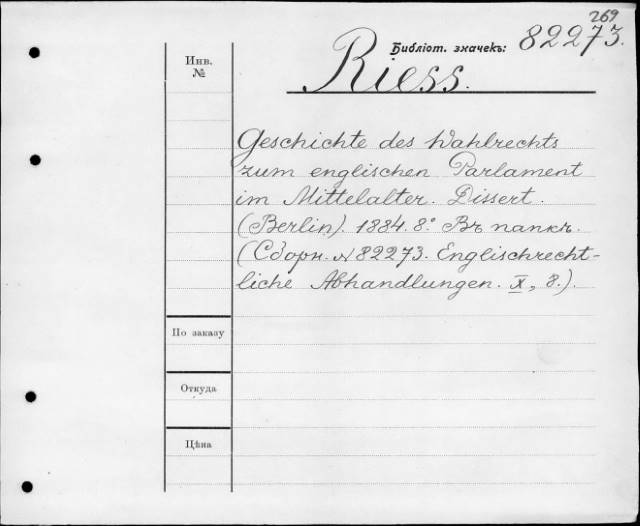 269
Библіот. значекъ: 82273.
Riess.
Инв.
№
Geschichte des Wahlrechts
zum englischen Parlament
im Mittelalter. Dissert.
(Berlin). 1884. 8.° Въ папкѣ.
(Сборн. № 82273. Englischrecht-
liche Abhandlungen. X, 8.).
По заказу
Откуда
Цѣна